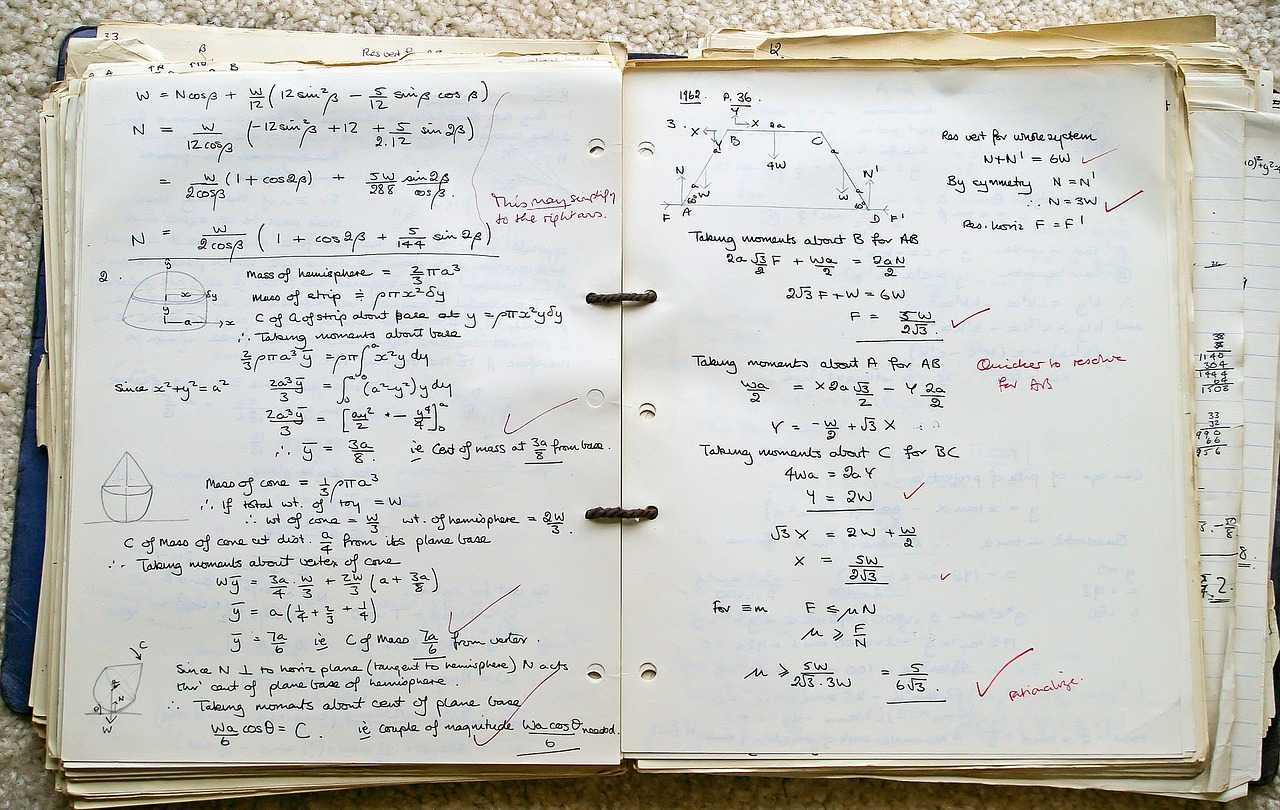 33.
β
Res vert
W = N cos β + W/12 (12 sin²β − 5/12 sin β cos β)
N = W/12cosβ (−12 sin²β + 12 + 5/2.12 sin 2β)
= W/2cosβ (1 + cos 2β) + 5W/288 sin 2β/cos β.
This may simplify
to the right ans.
N = W/2cosβ (1 + cos 2β + 5/144 sin 2β)
2.
y
x δy
y
a x
Mass of hemisphere = 2/3 πa³
Mass of strip ≏ ρπx²δy
C of G of strip about base at y = ρπx²yδy
∴ Taking moments about base
2/3 ρπa³ȳ = ρπ∫₀ᵃ x²y dy
Since x²+y²=a² 2a³ȳ/3 = ∫₀ᵃ (a²−y²) y dy
2a³ȳ/3 = [ay²/2 − y⁴/4]₀ᵃ
∴ ȳ = 3a/8 ie Cent of mass at 3a/8 from base.
Mass of cone = 1/3 ρπa³
∴ If total wt. of toy = W
∴ wt of cone = W/3 wt. of hemisphere = 2W/3.
C of Mass of cone at dist. a/4 from its plane base
∴ Taking moments about vertex of cone
Wȳ = 3a/4 . W/3 + 2W/3 (a + 3a/8)
ȳ = a(1/4 + 2/3 + 1/4)
ȳ = 7a/6 ie C of Mass 7a/6 from vertex.
C
N
θ
W
Since N ⊥ to horiz plane (tangent to hemisphere) N acts
thro' cent of plane base of hemisphere.
∴ Taking moments about cent of plane base
Wa/6 cos θ = C. ie couple of magnitude Wa cos θ/6 needed.
12.
1962. P. 36.
Y
3. X X 2a
Y B C
a 4W a
N N'
a W W a
60° 60°
F A D F'
Res vert for whole system
N+N' = 6W
By symmetry N = N'
∴ N = 3W
Res. horiz F = F'
Taking moments about B for AB
2a √3/2 F + Wa/2 = 2aN/2
2√3 F + W = 6W
F = 5W/2√3.
Taking moments about A for AB
Quicker to resolve
for AB
Wa/2 = X 2a √3/2 − Y 2a/2
Y = −W/2 + √3 X
Taking moments about C for BC
4Wa = 2aY
Y = 2W
√3 X = 2W + W/2
X = 5W/2√3
For ≡m F ≤ μN
μ ≥ F/N
μ ≥ 5W/2√3.3W = 5/6√3.
rationalize.
38
38
1140
304
1444
64
1508
33
32
990
66
956